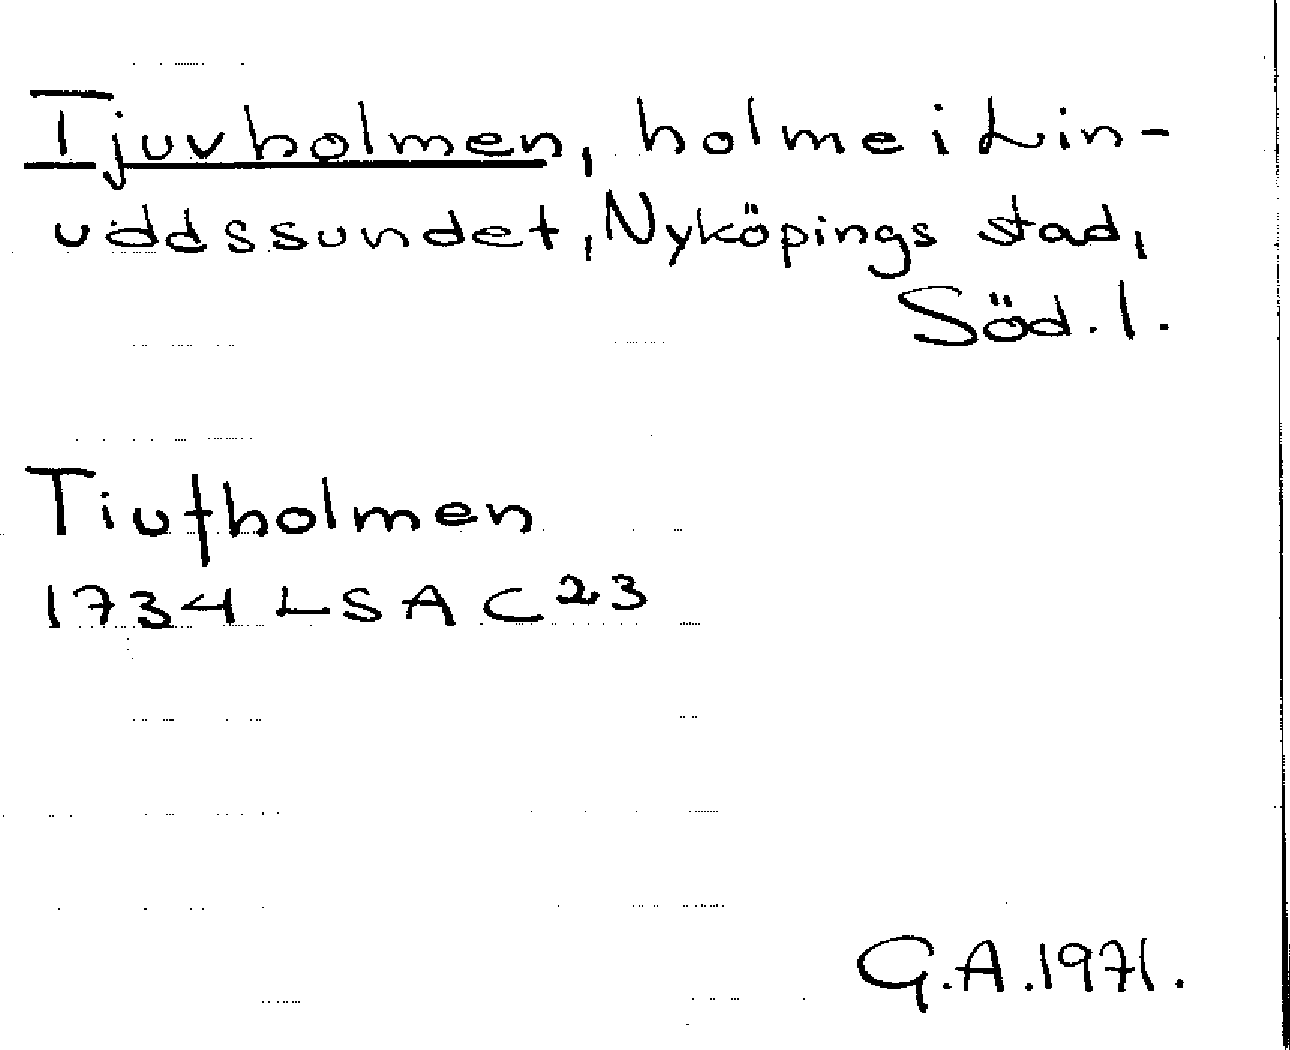 Tjuvholmen, holme i Lin-
uddssundet, Nyköpings stad,
Söd. l.
Tiufholmen
1734 LSA C23
G.A. 1971.